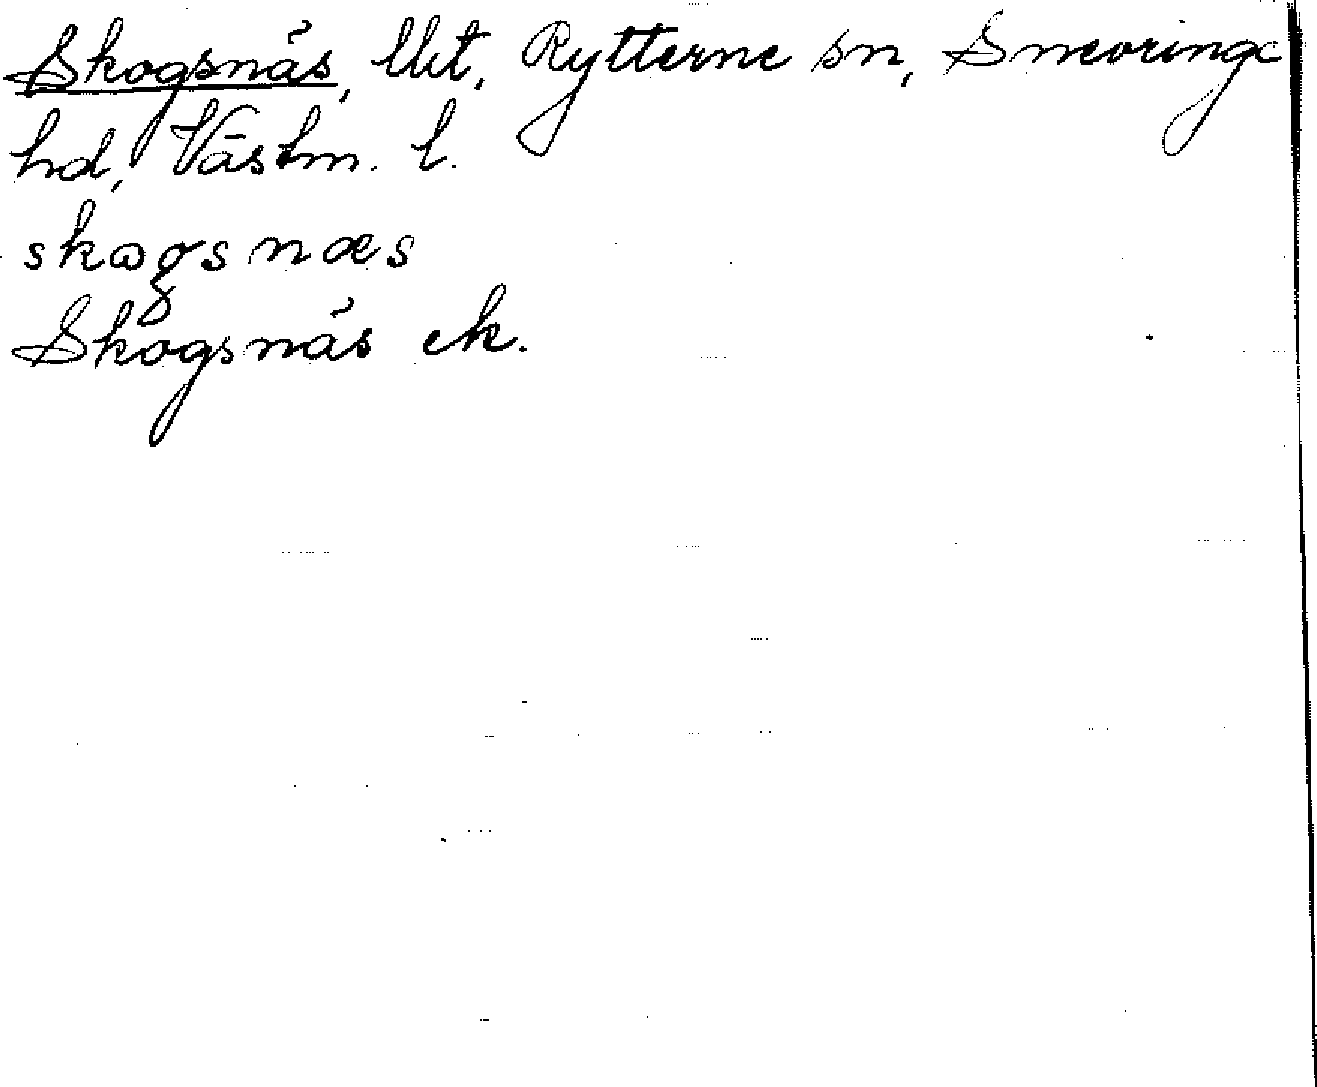 Skogsnäs, lht, Rytterne sn, Snevringe
hd, Västm. l.
skɷgsnæs
Skogsnäs ek.